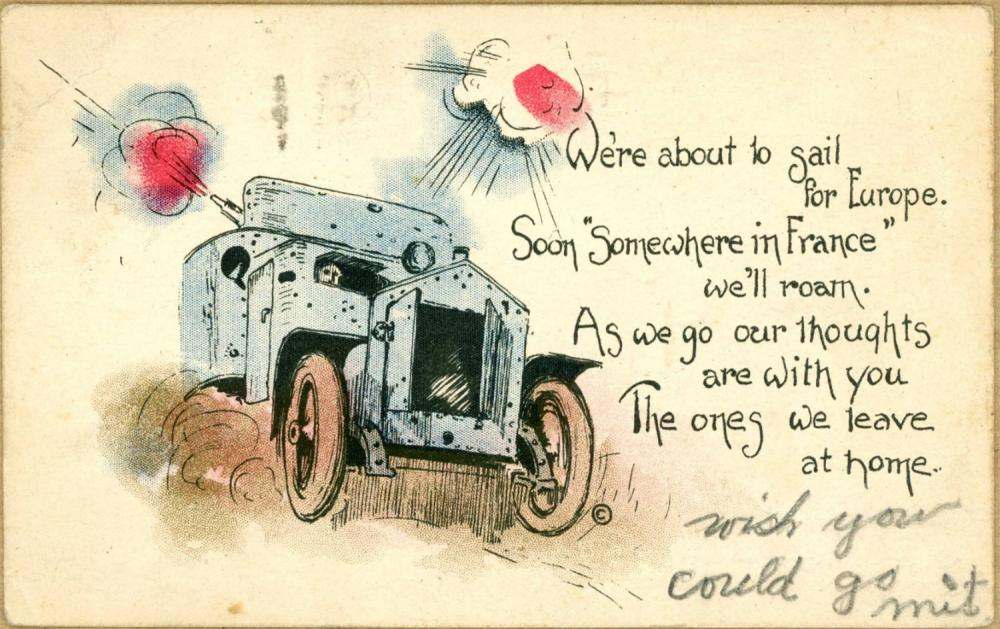 We're about to sail
for Europe.
Soon "Somewhere in France"
we'll roam.
As we go our thoughts
are with you
The ones we leave
at home.
©
wish you
could go mit